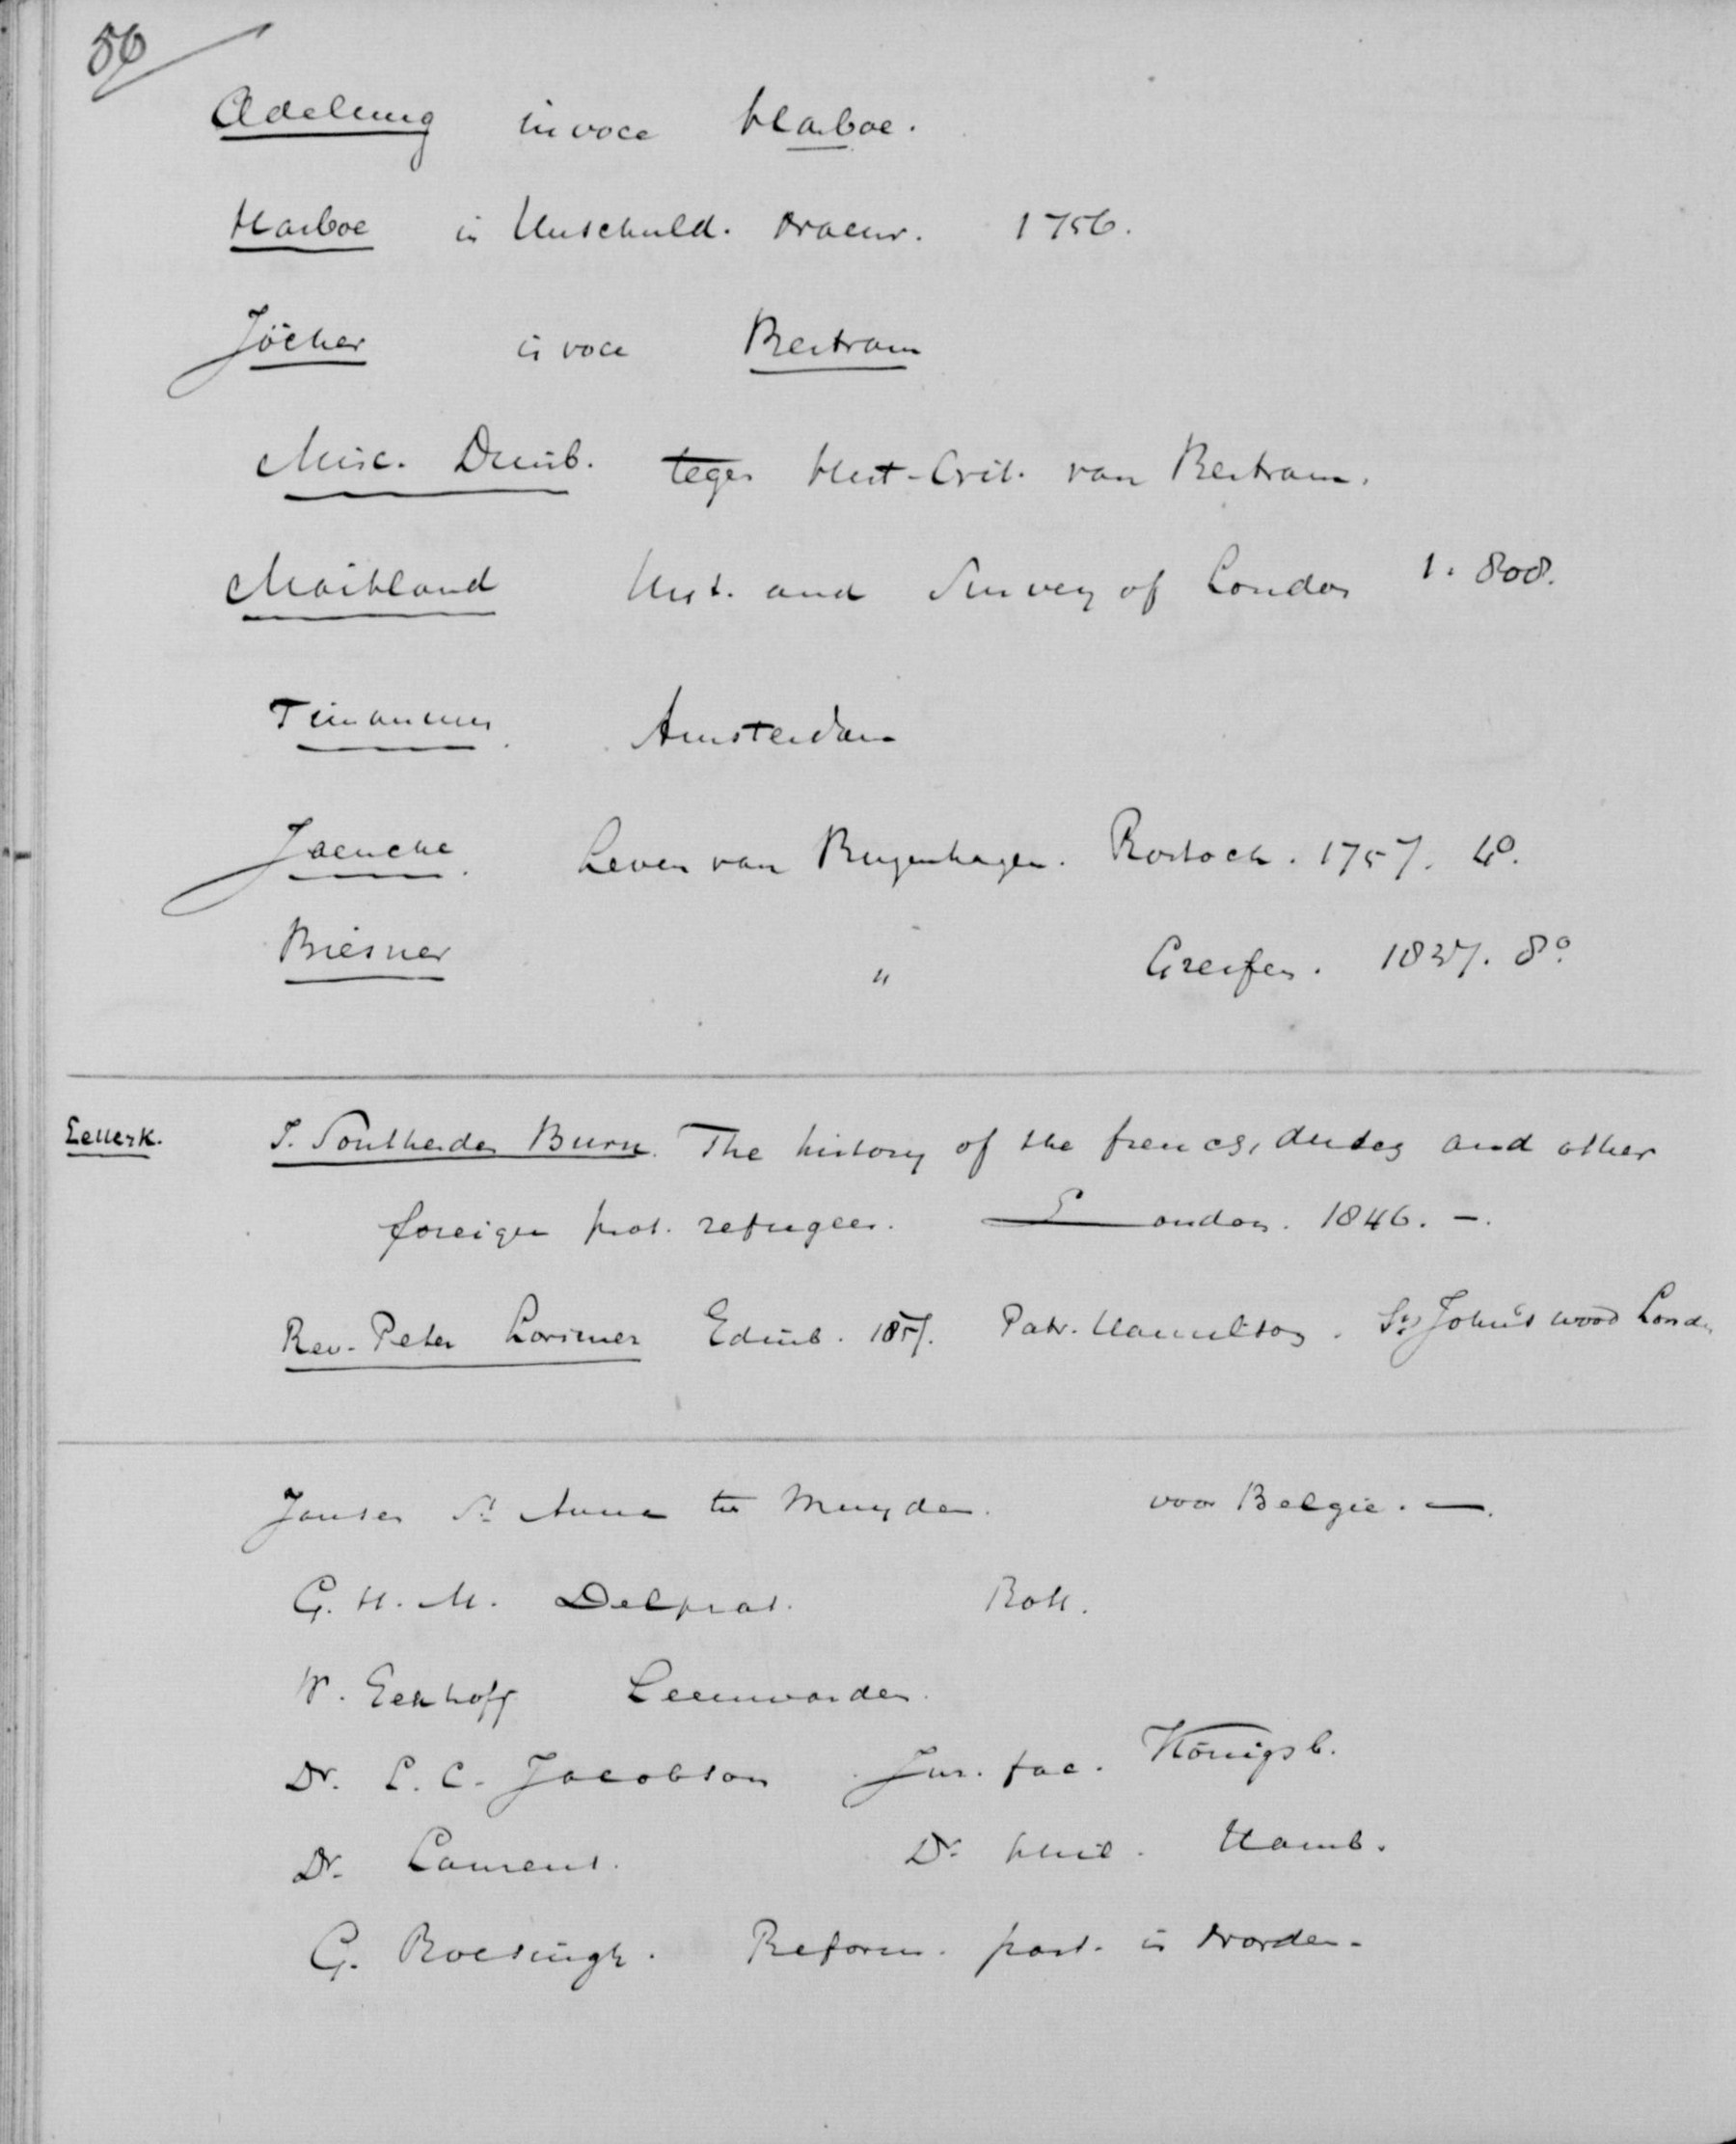 56
Adelung in voce Harboe.
Harboe in Unschuld. 1756.
Jöcher in voce Bertram
Misc. Duisb. tegen Hist-Crit. van Bertram.
Maitland Hist. and Survey of London 1. 808.
Timannus. Amsterdam
Jaencke. Leven van Bugenhagen. Rostock. 1757. 4°.
Biesner " Greifsn. 1837. 8°.
Eellerk. J. Southerden Burn. The history of the french, dutch and other
foreign prot. refugees. London. 1846. —.
Rev. Peter Lorimer Edinb. 1857. Patr. Hamilton. St John's wood Londn
Jansen St Anna ter Muyden. voor Belgie. —.
G. H. M. Delprat. Rott.
W. Eekhoff Leeuwarden.
Dr. L. C. Jacobson Jur. fac. Königsb.
Dr. Laurent. Dr. phil. Hamb.
G. Roesingh. Reform. past. in Norden.